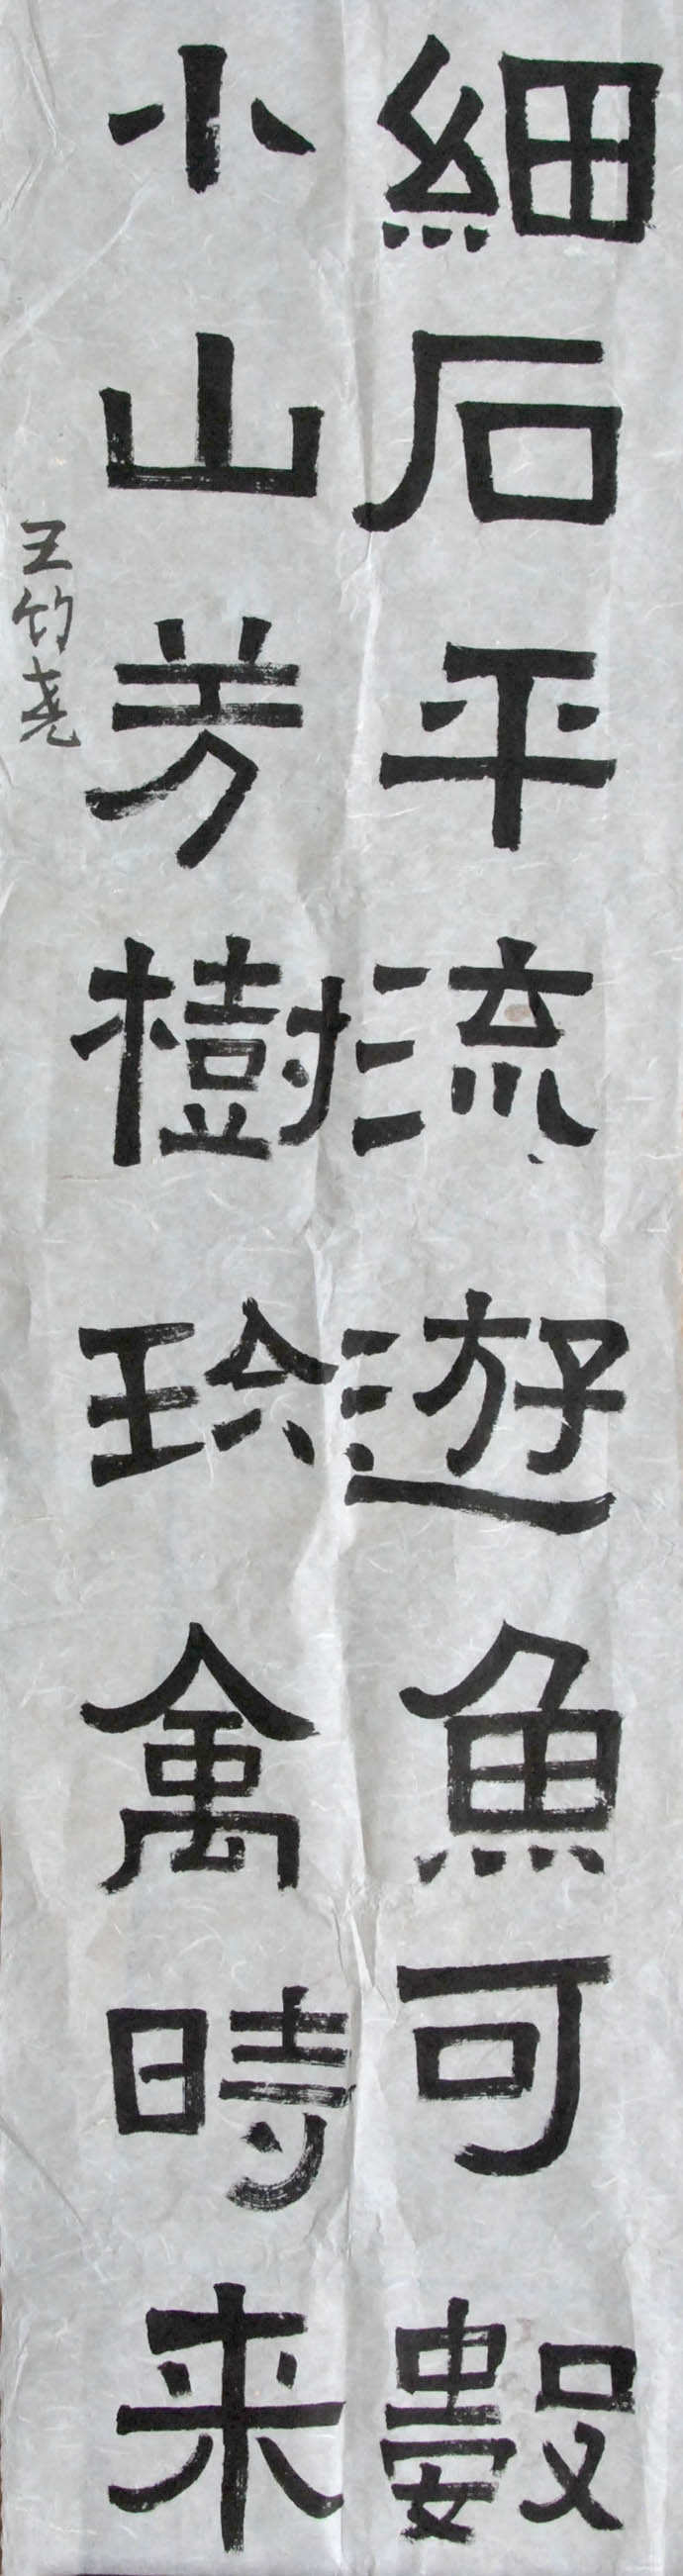 細石平流遊魚可數
小山芳樹珍禽時来
王竹堯